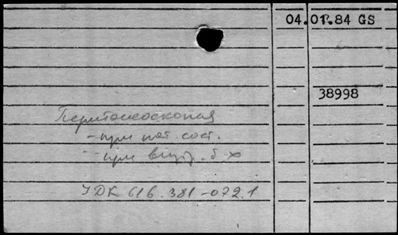 04.01.84 GS
38998
Перитонеоскопия
- при пат. сост.
- при внутр. б-х
УДК 616.381-072.1